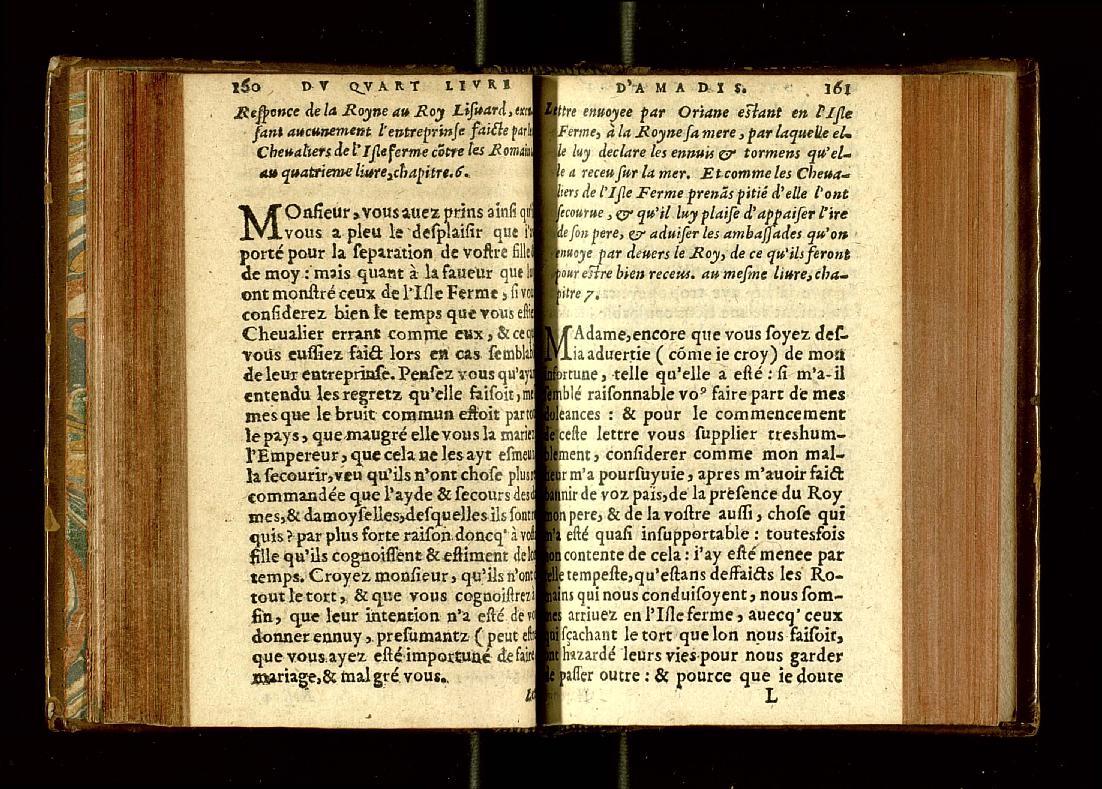 160 DV QVART LIVRE
Responce de la Royne au Roy Lisuard, excu
sant aucunement l'entreprinse faicte par les
Cheualiers de l'Isle ferme cõtre les Romains
au quatrieme liure, chapitre. 6.
MOnsieur, vous auez prins ainsi qu'il
vous a pleu le desplaisir que i'ay
porté pour la separation de vostre fille &
de moy : mais quant à la faueur que luy
ont monstré ceux de l'Isle Ferme, si vous
considerez bien le temps que vous estiez
Cheualier errant comme eux, & ce que
vous eussiez faict lors en cas semblable
de leur entreprinse. Pensez vous qu'ayãt
entendu les regretz qu'elle faisoit, mes
mes que le bruit commun estoit par tout
le pays, que maugré elle vous la mariez
l'Empereur, que cela ne les ayt esmeuz
la secourir, veu qu'ils n'ont chose plus re
commandée que l'ayde & secours des da
mes, & damoyselles, desquelles ils sont re
quis ? par plus forte raison doncq' à vostre
fille qu'ils cognoissent & estiment de lõg
temps. Croyez monsieur, qu'ils n'ont
tout le tort, & que vous cognoistrez à
fin, que leur intention n'a esté de vous
donner ennuy, presumantz ( peut estre
que vous ayez esté importuné de faire
mariage, & malgré vous.
D'AMADIS. 161
Lettre enuoyee par Oriane estant en l'Isle
Ferme, à la Royne sa mere, par laquelle el-
le luy declare les ennuis & tormens qu'el-
le a receu sur la mer. Et comme les Cheua-
liers de l'Isle Ferme prenãs pitié d'elle l'ont
secourue, & qu'il luy plaise d'appaiser l'ire
de son pere, & aduiser les ambassades qu'on
enuoye par deuers le Roy, de ce qu'ils feront
pour estre bien receus. au mesme liure, cha-
pitre 7.
MAdame, encore que vous soyez des-
ia aduertie ( cõme ie croy) de mon
infortune, telle qu'elle a esté : si m'a-il
semblé raisonnable voꝰ faire part de mes
doleances : & pour le commencement
de ceste lettre vous supplier treshum-
blement, considerer comme mon mal-
heur m'a poursuyuie, apres m'auoir faict
bannir de voz païs, de la presence du Roy
mon pere, & de la vostre aussi, chose qui
m'a esté quasi insupportable : toutesfois
non contente de cela : i'ay esté menee par
telle tempeste, qu'estans deffaicts les Ro-
mains qui nous conduisoyent, nous som-
mes arriuez en l'Isle ferme, auecq' ceux
qui sçachant le tort que lon nous faisoit,
ont hazardé leurs vies pour nous garder
de passer outre : & pource que ie doute
L